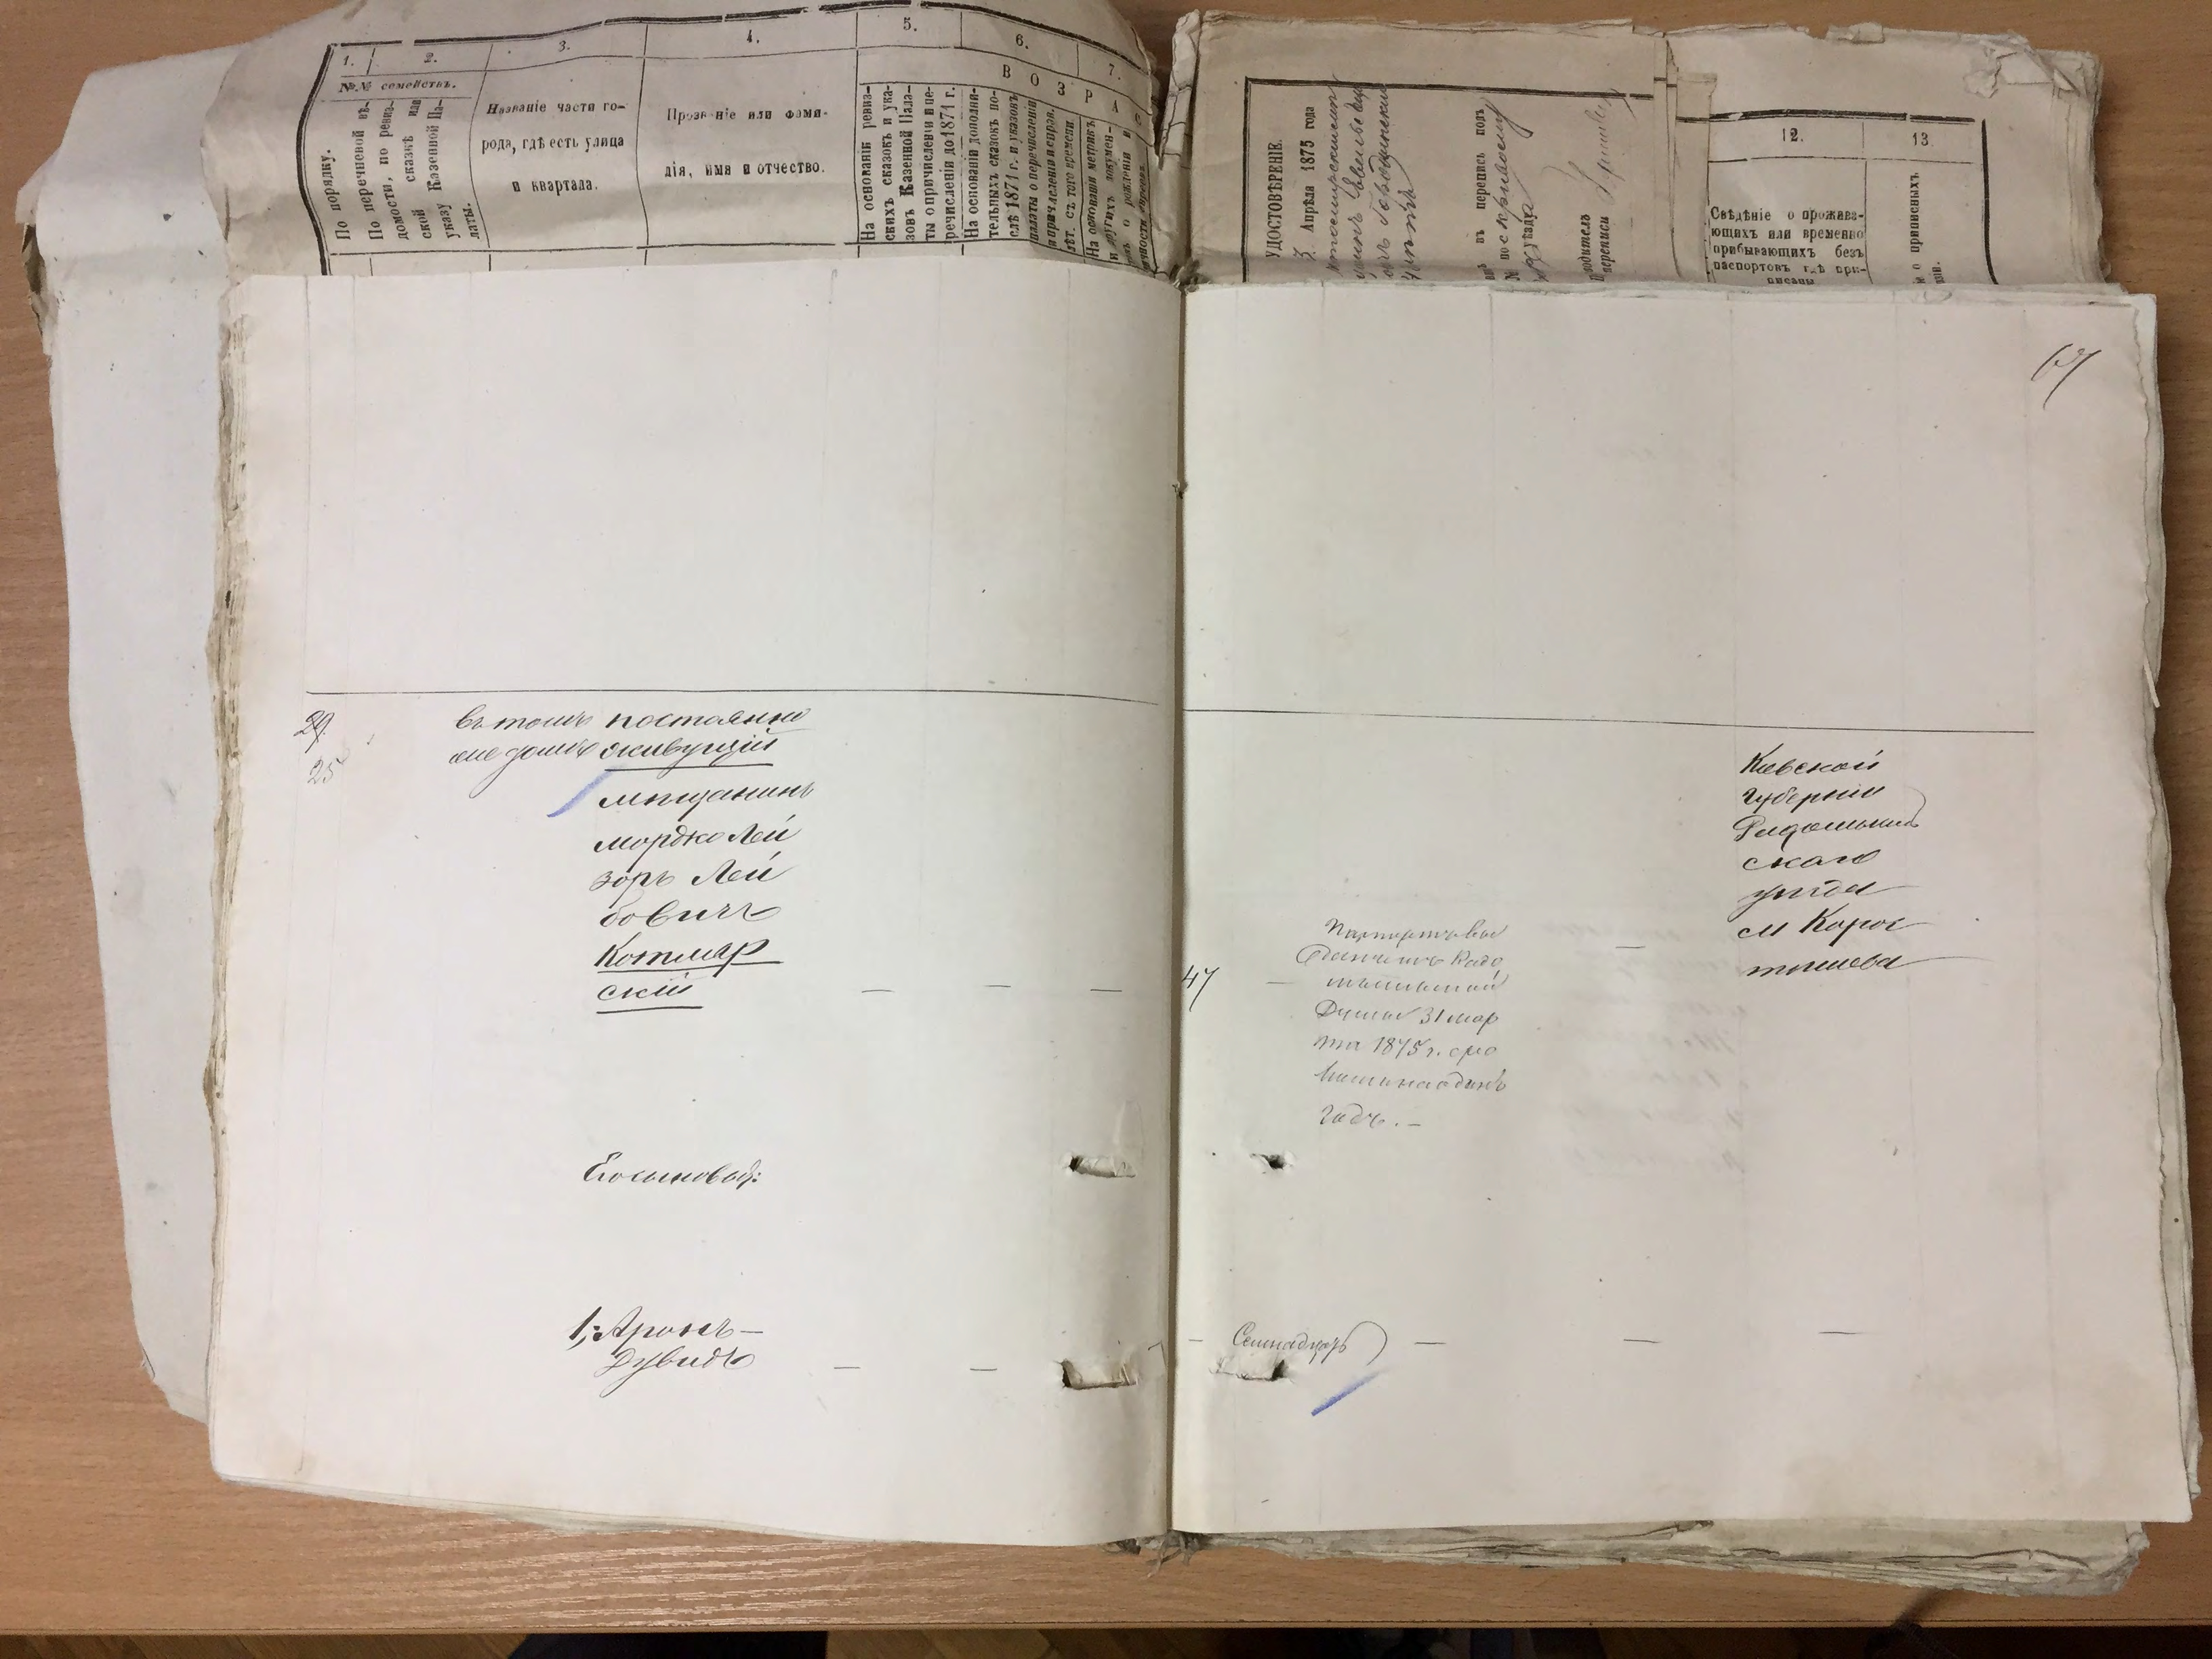 1.
2.
3.
4.
5.
6.
7.
№.№ семействъ.
В О З Р А С
По порядку.
По перечневой вѣ-
домости, по ревиз-
ской сказкѣ или
указу Казенной Па-
латы.
Названіе части го-
рода, гдѣ есть улица
и квартала.
Прозваніе или фами-
лія, имя и отчество.
На основаніи ревиз-
скихъ сказокъ и ука-
зовъ Казенной Пала-
ты о причисленіи и пе-
речисленіи до 1871 г.
На основаніи дополни-
тельныхъ сказокъ по-
слѣ 1871 г. и указовъ
палаты о перечисленіи
и причисленіи
лѣт. съ того времени.
На основаніи метрикъ
и другихъ докумен-
о рожденіи и
УДОСТОВѢРЕНІЕ.
3 Апрѣля 1875 года
въ перепись подъ
№ по
уѣзда
переписи
12.
13.
Свѣдѣніе о прожива-
ющихъ или временно
прибывающихъ безъ
паспортовъ гдѣ при-
писаны
о приписныхъ
67
29.
25
въ томъ постоянно
же домѣ живущій
мѣщанинъ
Мордко Лей
зоръ Лей
бовичъ
Котляр
скій
47
Паспортъ вы
данъ изъ Радо
мысльской
Думы 31 мар
та 1875 г. сро
комъ на одинъ
годъ. —
Кіевской
Губерніи
Радомысль
скаго
уѣзда
м Корос
тышева
Его сыновья:
1, Аронъ —
Дувидъ
Семнадцать